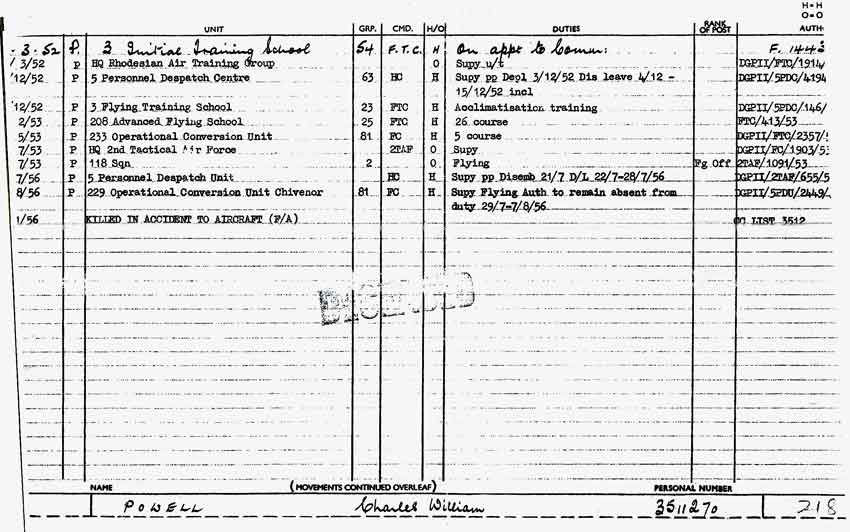 H = H
O = O
UNIT GRP. CMD. H/O DUTIES RANK OF POST AUTH
3·52 P. 3 Initial Training School 54 F.T.C. H On appt to Commn: F. 1443
/ 3/52 P HQ Rhodesian Air Training Group O Supy u/t DGPII/FTC/1914
12/52 P 5 Personnel Despatch Centre 63 HC H Supy pp Depl 3/12/52 Dis leave 4/12 - DGPII/5PDC/4194
15/12/52 incl
12/52 P 3 Flying Training School 23 FTC H Acclimatisation training DGPII/5PDC/146/
2/53 P 208 Advanced Flying School 25 FTC H 26 course FTC/413/53
5/53 P 233 Operational Conversion Unit 81 FC H 5 course DGPII/FTC/2357/
7/53 P HQ 2nd Tactical Air Force 2TAF O Supy DGPII/FC/1903/5
7/53 P 118 Sqn 2 O Flying Fg Off 2TAF/1091/53
7/56 P 5 Personnel Despatch Unit HC H Supy pp Disemb 21/7 D/L 22/7-28/7/56 DGPII/2TAF/655/5
8/56 P 229 Operational Conversion Unit Chivenor 81 FC H Supy Flying Auth to remain absent from DGPII/5PDU/2449/
duty 29/7-7/8/56
1/56 KILLED IN ACCIDENT TO AIRCRAFT (F/A) LIST 3512
NAME (MOVEMENTS CONTINUED OVERLEAF) PERSONAL NUMBER
POWELL Charles William 3511270 218